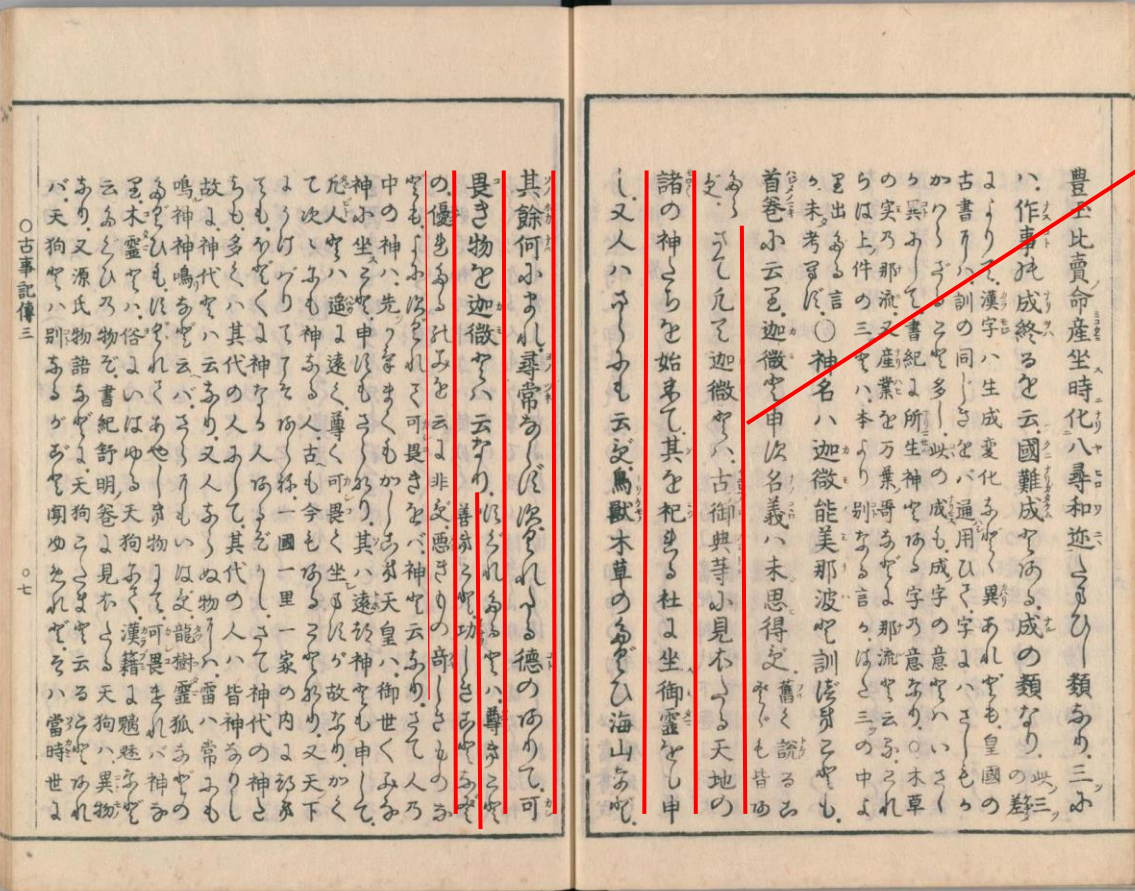 豊玉比賣命産坐時化八尋和迩たまひし類なり、三に
ハ、作事の成終るを云、國難成とある、成の類なり、此三の差
によりて、漢字ハ生成変化などゝ異あれども、皇國の
古書にハ、訓の同じきをバ通用ひて、字にハさしもか
かハらざること多し、此の成も、成字の意とハいさゝ
か異にして、書紀に所生神とある字の意なり、○木草
の実の那流、又産業を万葉哥などに那流と云る、これ
らは上件の三とハ、本より別なる言か、はた三つの中よ
り出たる言か、未考得ず、○神名ハ迦微能美那波と訓べきことも、
首巻に云り、迦微と申す名義ハ未思得ず、舊く説ることども皆あ
たらず、さて凡て迦微とハ、古御典等に見えたる天地の
諸の神たちを始めて、其を祀れる社に坐御霊をも申
し、又人ハさらにも云ず、鳥獣木草のたぐひ海山など、
其餘何にまれ、尋常ならずすぐれたる徳のありて、可
畏き物を迦微とハ云なり、すぐれたるとハ、尊きこと善きこと、功しきことなど
の、優れたるのみを云に非ず、悪きもの奇しきものなど
ども、よにすぐれて可畏きをバ、神と云なり、さて人の
中の神ハ、先かけまくもかしこき天皇ハ、御世々々みな
神に坐こと、申すもさらなり、其ハ遠つ神とも申して、
凡人とハ遥に遠く、尊く可畏く坐ますが故なり、かく
て次々にも神なる人、古も今もあることなり、又天下
にうけばりてこそあらね、一國一里一家の内につき
ても、ほどゝゝに神なる人あるぞかし、さて神代の神た
ちも、多くハ其代の人にして、其代の人ハ皆神なりし
故に、神代とハ云なり、又人ならぬ物にハ、雷ハ常にも
鳴神神鳴など云バ、さらにもいはず、龍樹霊狐などの
たぐひも、すぐれてあやしき物にて、可畏ければ神な
り、木霊とハ、俗にいはゆる天狗にて、漢籍に魑魅など
云たぐひの物ぞ、書紀舒明巻に見えたる天狗ハ、異物
なり、又源氏物語などに、天狗こたまと云ることあれ
バ、天狗とハ別なるがごと聞ゆめれど、そハ當時世に
○古事記傳三　○七